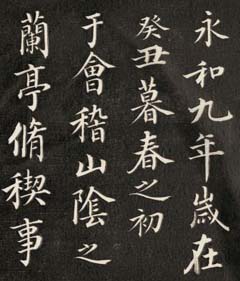 永和九年歲在
癸丑暮春之初
于會稽山陰之
蘭亭脩稧事